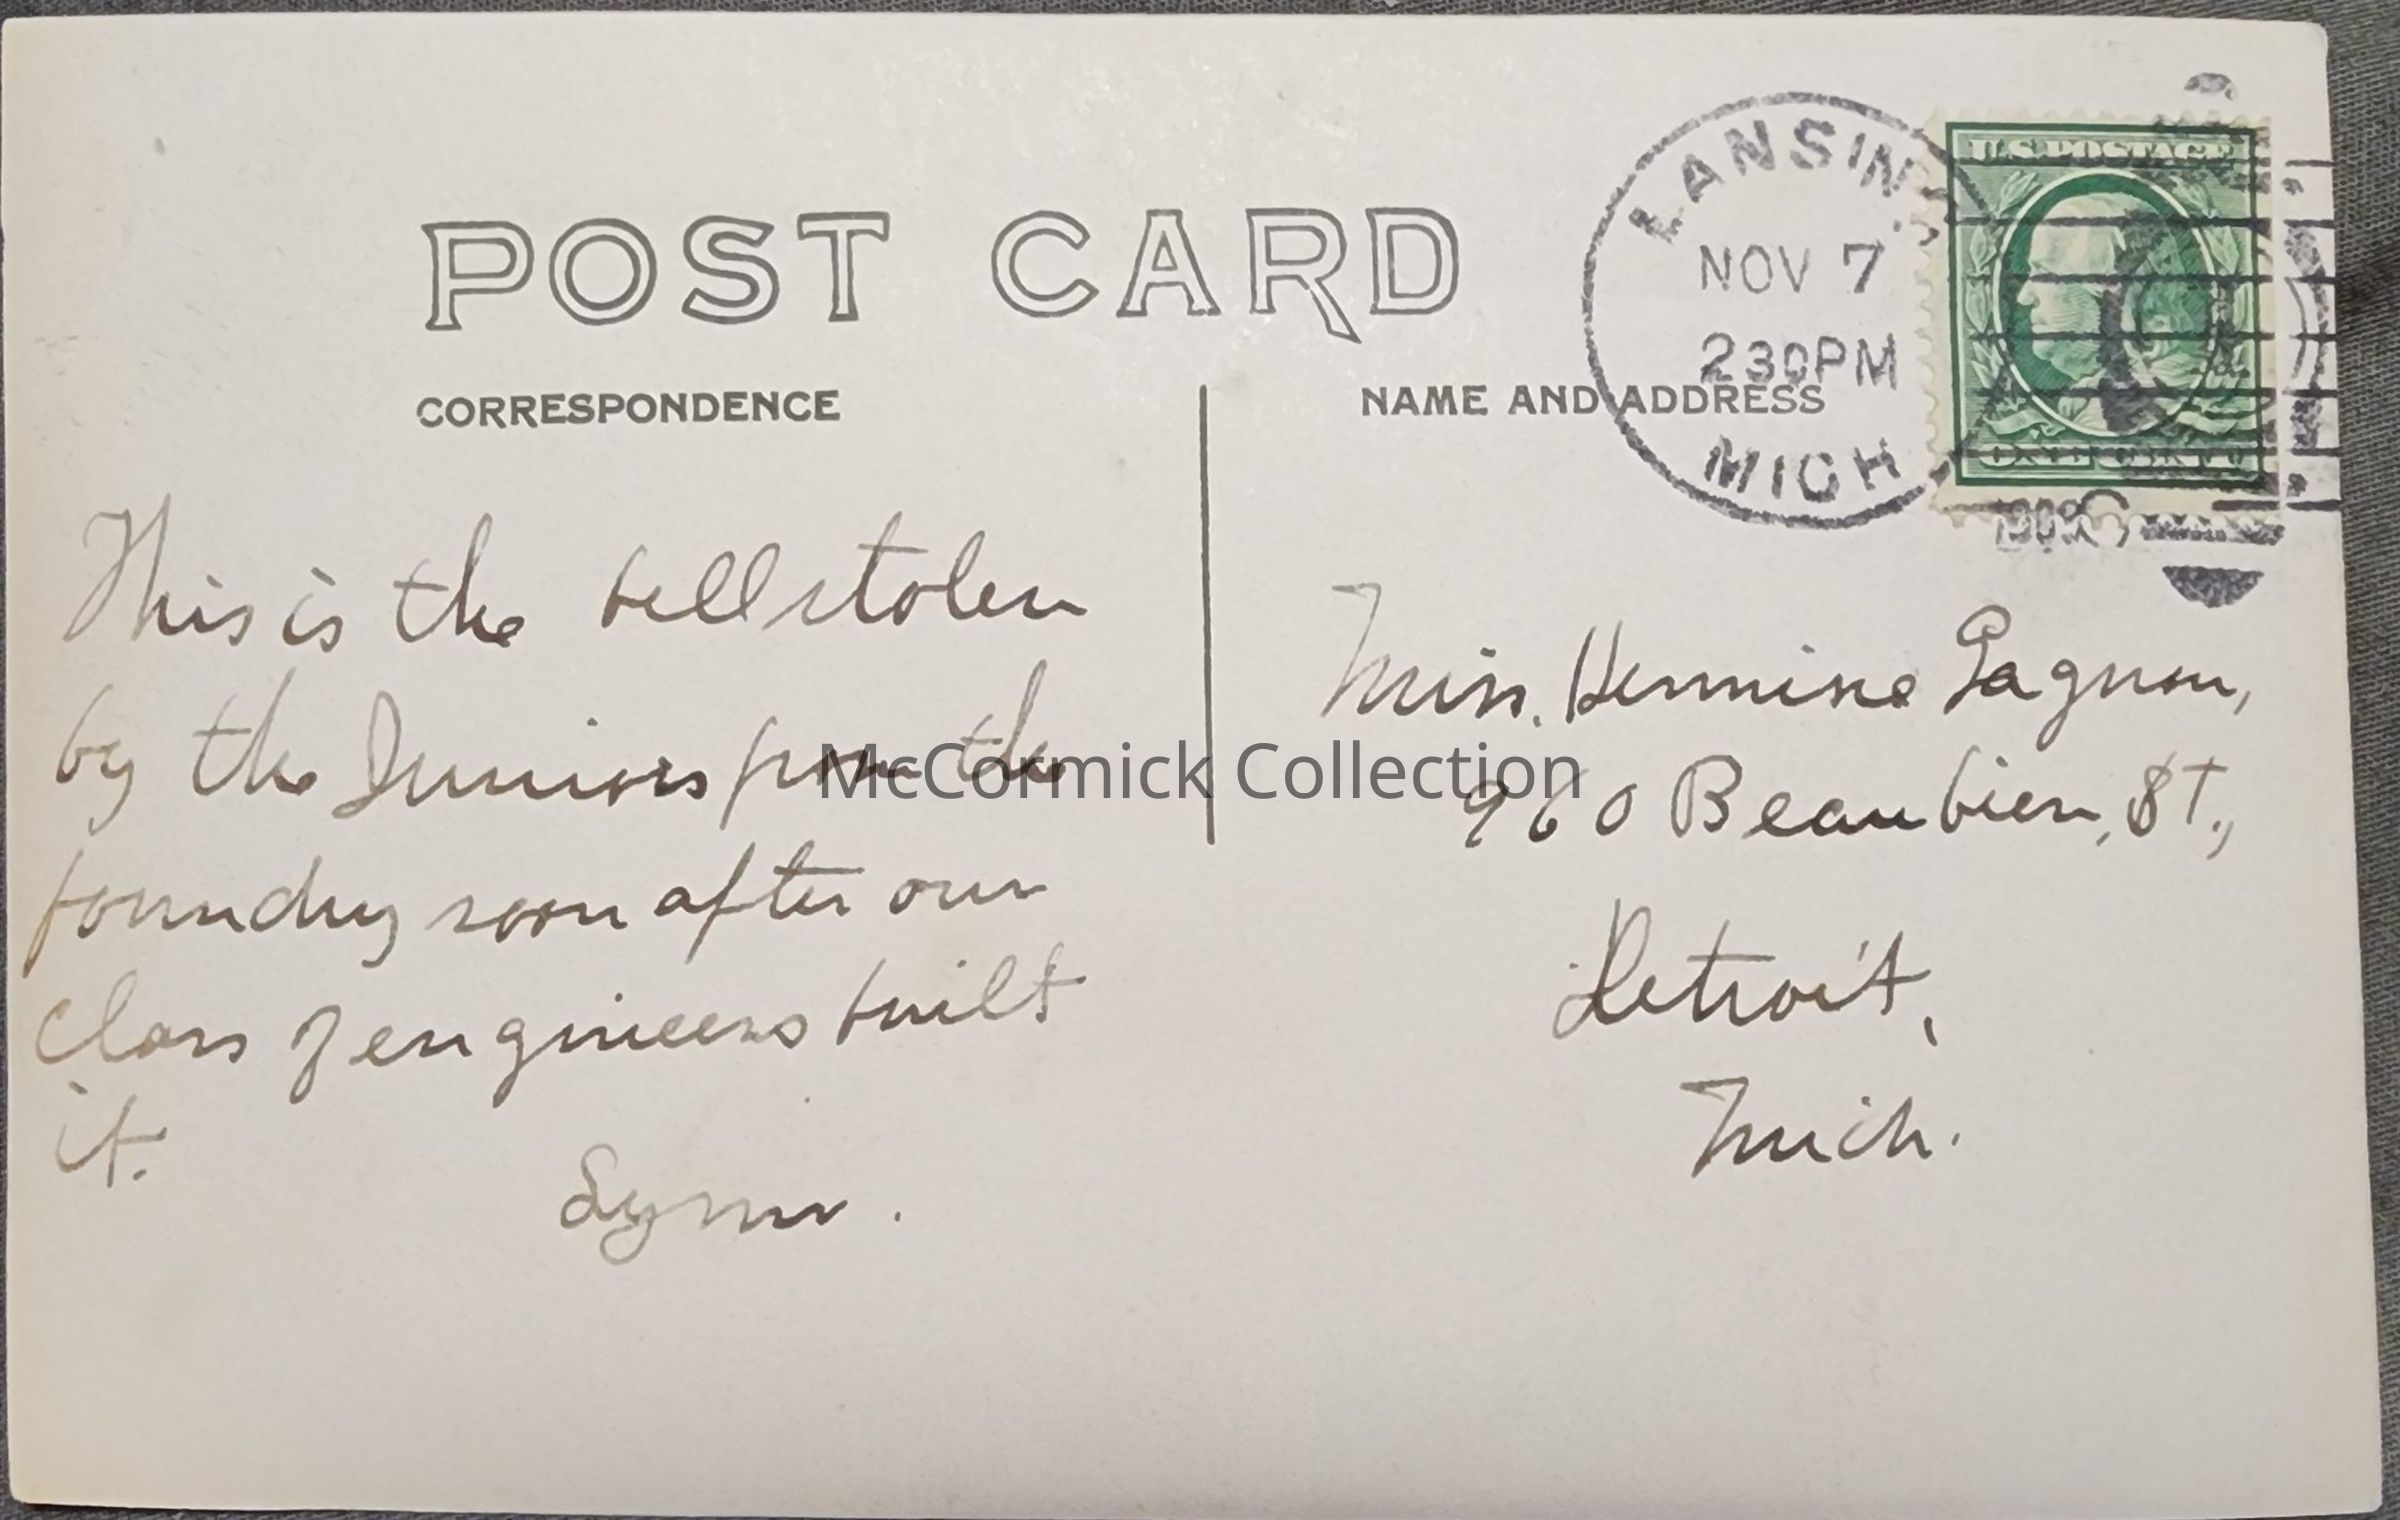 POST CARD
CORRESPONDENCE
NAME AND ADDRESS
LANSING
NOV 7
230PM
MICH
U.S. POSTAGE
ONE CENT
This is the bell stolen
by the Juniors from the
foundry soon after our
class of engineers built
it.
Lynn.
Miss. Hermine Gagnon,
960 Beaubien, St.,
Detroit,
Mich.
McCormick Collection